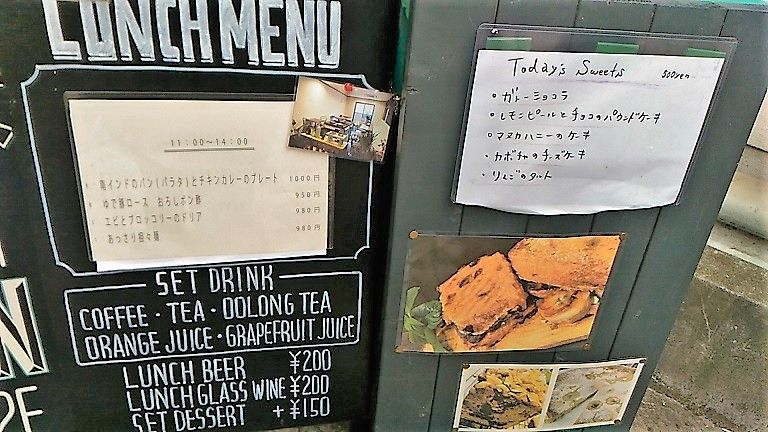 LUNCH MENU
11:00～14:00
南インドのパン(パラタ)とチキンカレーのプレート 1000円
ゆで豚ロース おろしポン酢 950円
エビとブロッコリーのドリア 980円
あっさり担々麺 980円
SET DRINK
COFFEE・TEA・OOLONG TEA
ORANGE JUICE・GRAPEFRUIT JUICE
LUNCH BEER ¥200
LUNCH GLASS WINE ¥200
SET DESSERT +¥150
Today's Sweets 500yen
・ガトーショコラ
・レモンピールとチョコのパウンドケーキ
・マヌカハニーのケーキ
・カボチャのチーズケーキ
・りんごのタルト